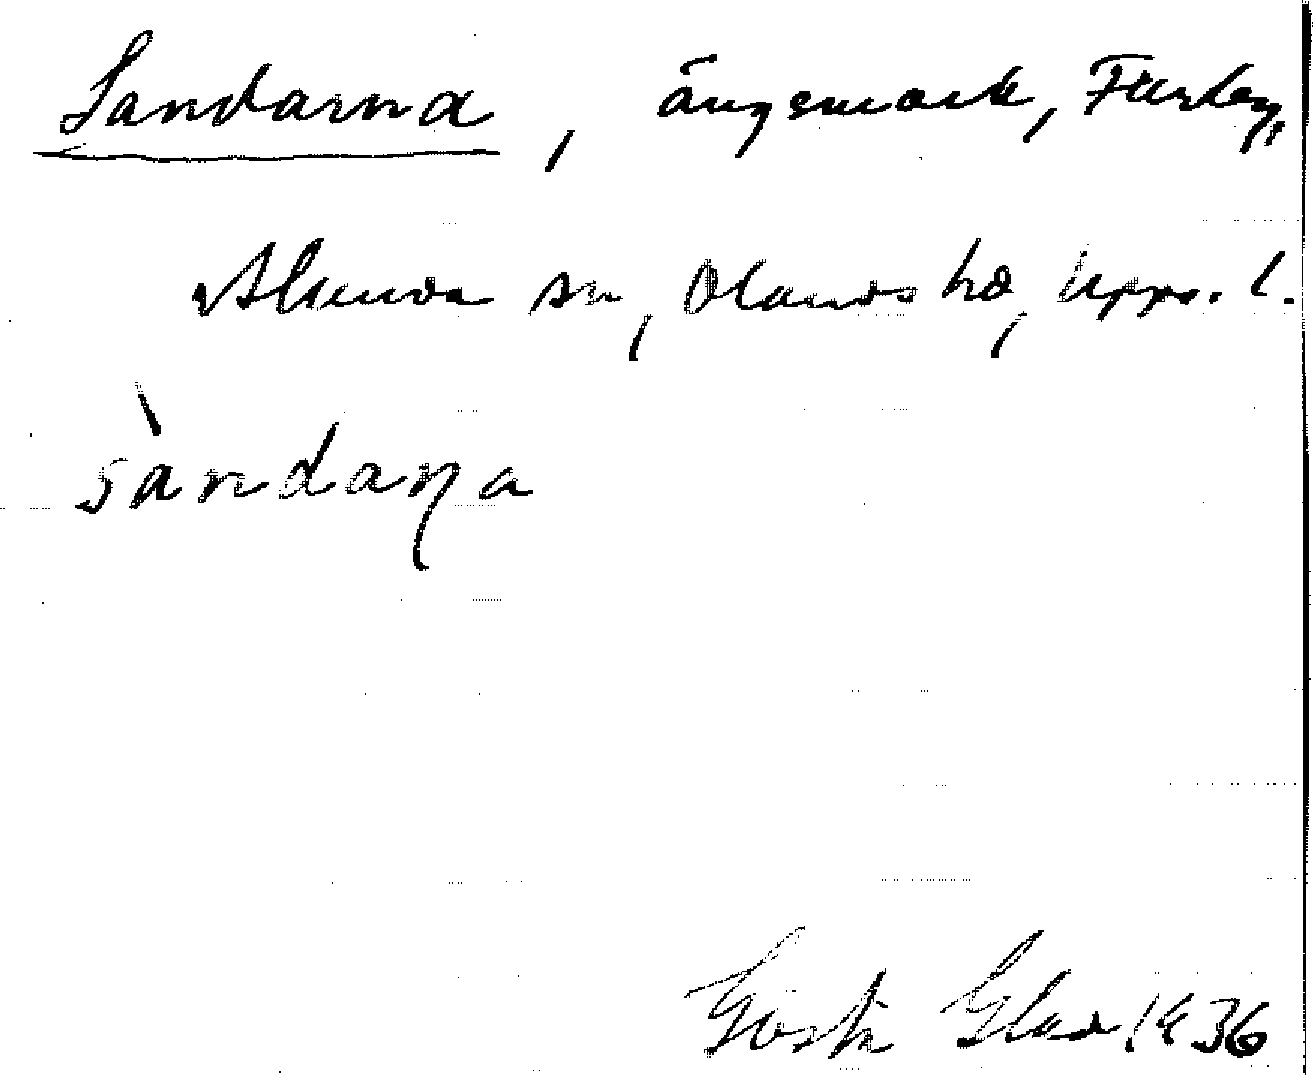 Sandarna, ängsmark, Farby,
Alunda sn, Olands hd, Upps. l.
sàndaṇa
Gösta Glad 1936